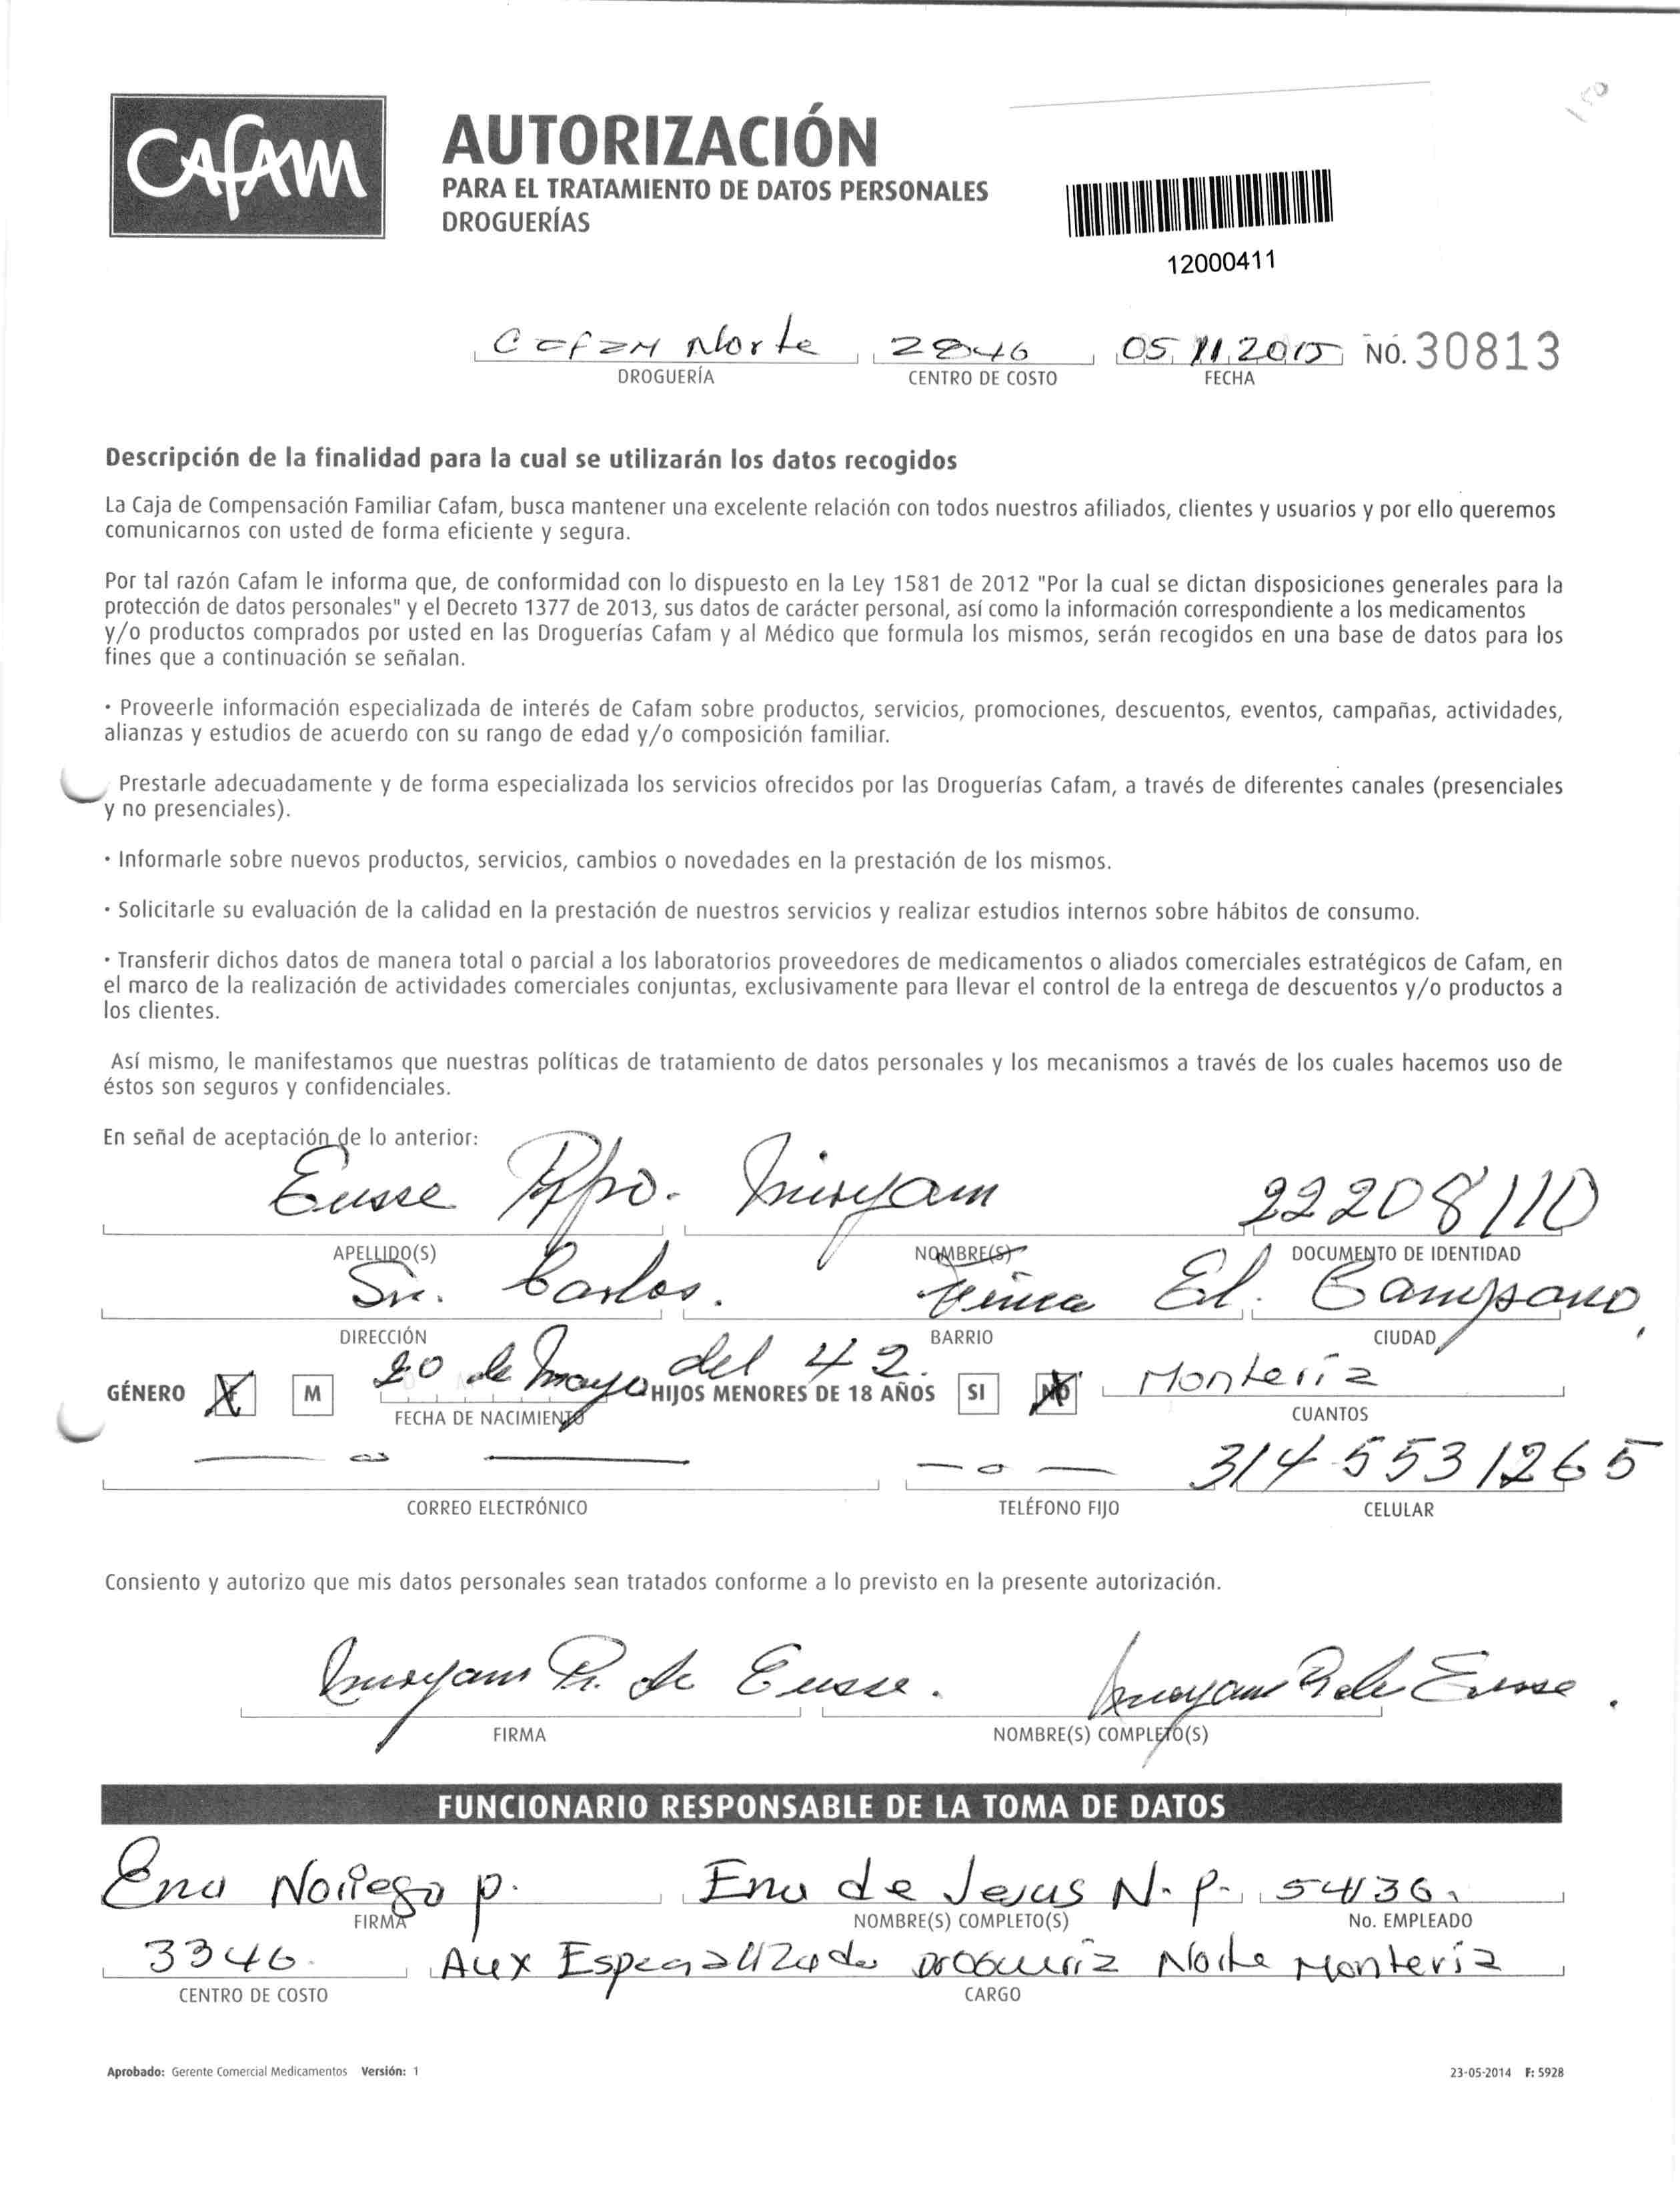 CAFAM
AUTORIZACIÓN
PARA EL TRATAMIENTO DE DATOS PERSONALES
DROGUERÍAS
12000411
Cafam Norte 2846 05 11 2015 NO. 30813
DROGUERÍA CENTRO DE COSTO FECHA
Descripción de la finalidad para la cual se utilizarán los datos recogidos
La Caja de Compensación Familiar Cafam, busca mantener una excelente relación con todos nuestros afiliados, clientes y usuarios y por ello queremos
comunicarnos con usted de forma eficiente y segura.
Por tal razón Cafam le informa que, de conformidad con lo dispuesto en la Ley 1581 de 2012 "Por la cual se dictan disposiciones generales para la
protección de datos personales" y el Decreto 1377 de 2013, sus datos de carácter personal, así como la información correspondiente a los medicamentos
y/o productos comprados por usted en las Droguerías Cafam y al Médico que formula los mismos, serán recogidos en una base de datos para los
fines que a continuación se señalan.
· Proveerle información especializada de interés de Cafam sobre productos, servicios, promociones, descuentos, eventos, campañas, actividades,
alianzas y estudios de acuerdo con su rango de edad y/o composición familiar.
Prestarle adecuadamente y de forma especializada los servicios ofrecidos por las Droguerías Cafam, a través de diferentes canales (presenciales
y no presenciales).
· Informarle sobre nuevos productos, servicios, cambios o novedades en la prestación de los mismos.
· Solicitarle su evaluación de la calidad en la prestación de nuestros servicios y realizar estudios internos sobre hábitos de consumo.
· Transferir dichos datos de manera total o parcial a los laboratorios proveedores de medicamentos o aliados comerciales estratégicos de Cafam, en
el marco de la realización de actividades comerciales conjuntas, exclusivamente para llevar el control de la entrega de descuentos y/o productos a
los clientes.
Así mismo, le manifestamos que nuestras políticas de tratamiento de datos personales y los mecanismos a través de los cuales hacemos uso de
éstos son seguros y confidenciales.
En señal de aceptación de lo anterior:
Eusse Rpo. Miryam 22208110
APELLIDO(S) NOMBRE(S) DOCUMENTO DE IDENTIDAD
Sn. Carlos. Finca El. Campano
DIRECCIÓN BARRIO CIUDAD
20 de Mayo del 42. Montería
GÉNERO M HIJOS MENORES DE 18 AÑOS SI NO
FECHA DE NACIMIENTO CUANTOS
314 5531265
CORREO ELECTRÓNICO TELÉFONO FIJO CELULAR
Consiento y autorizo que mis datos personales sean tratados conforme a lo previsto en la presente autorización.
Miryam R. de Eusse. Miryam R de Eusse.
FIRMA NOMBRE(S) COMPLETO(S)
FUNCIONARIO RESPONSABLE DE LA TOMA DE DATOS
Ena Noriega p. Ena de Jesus N. P. 54136
FIRMA NOMBRE(S) COMPLETO(S) No. EMPLEADO
3346. Aux Especializada Drogueria Norte Montería
CENTRO DE COSTO CARGO
Aprobado: Gerente Comercial Medicamentos Versión: 1 23-05-2014 F: 5928